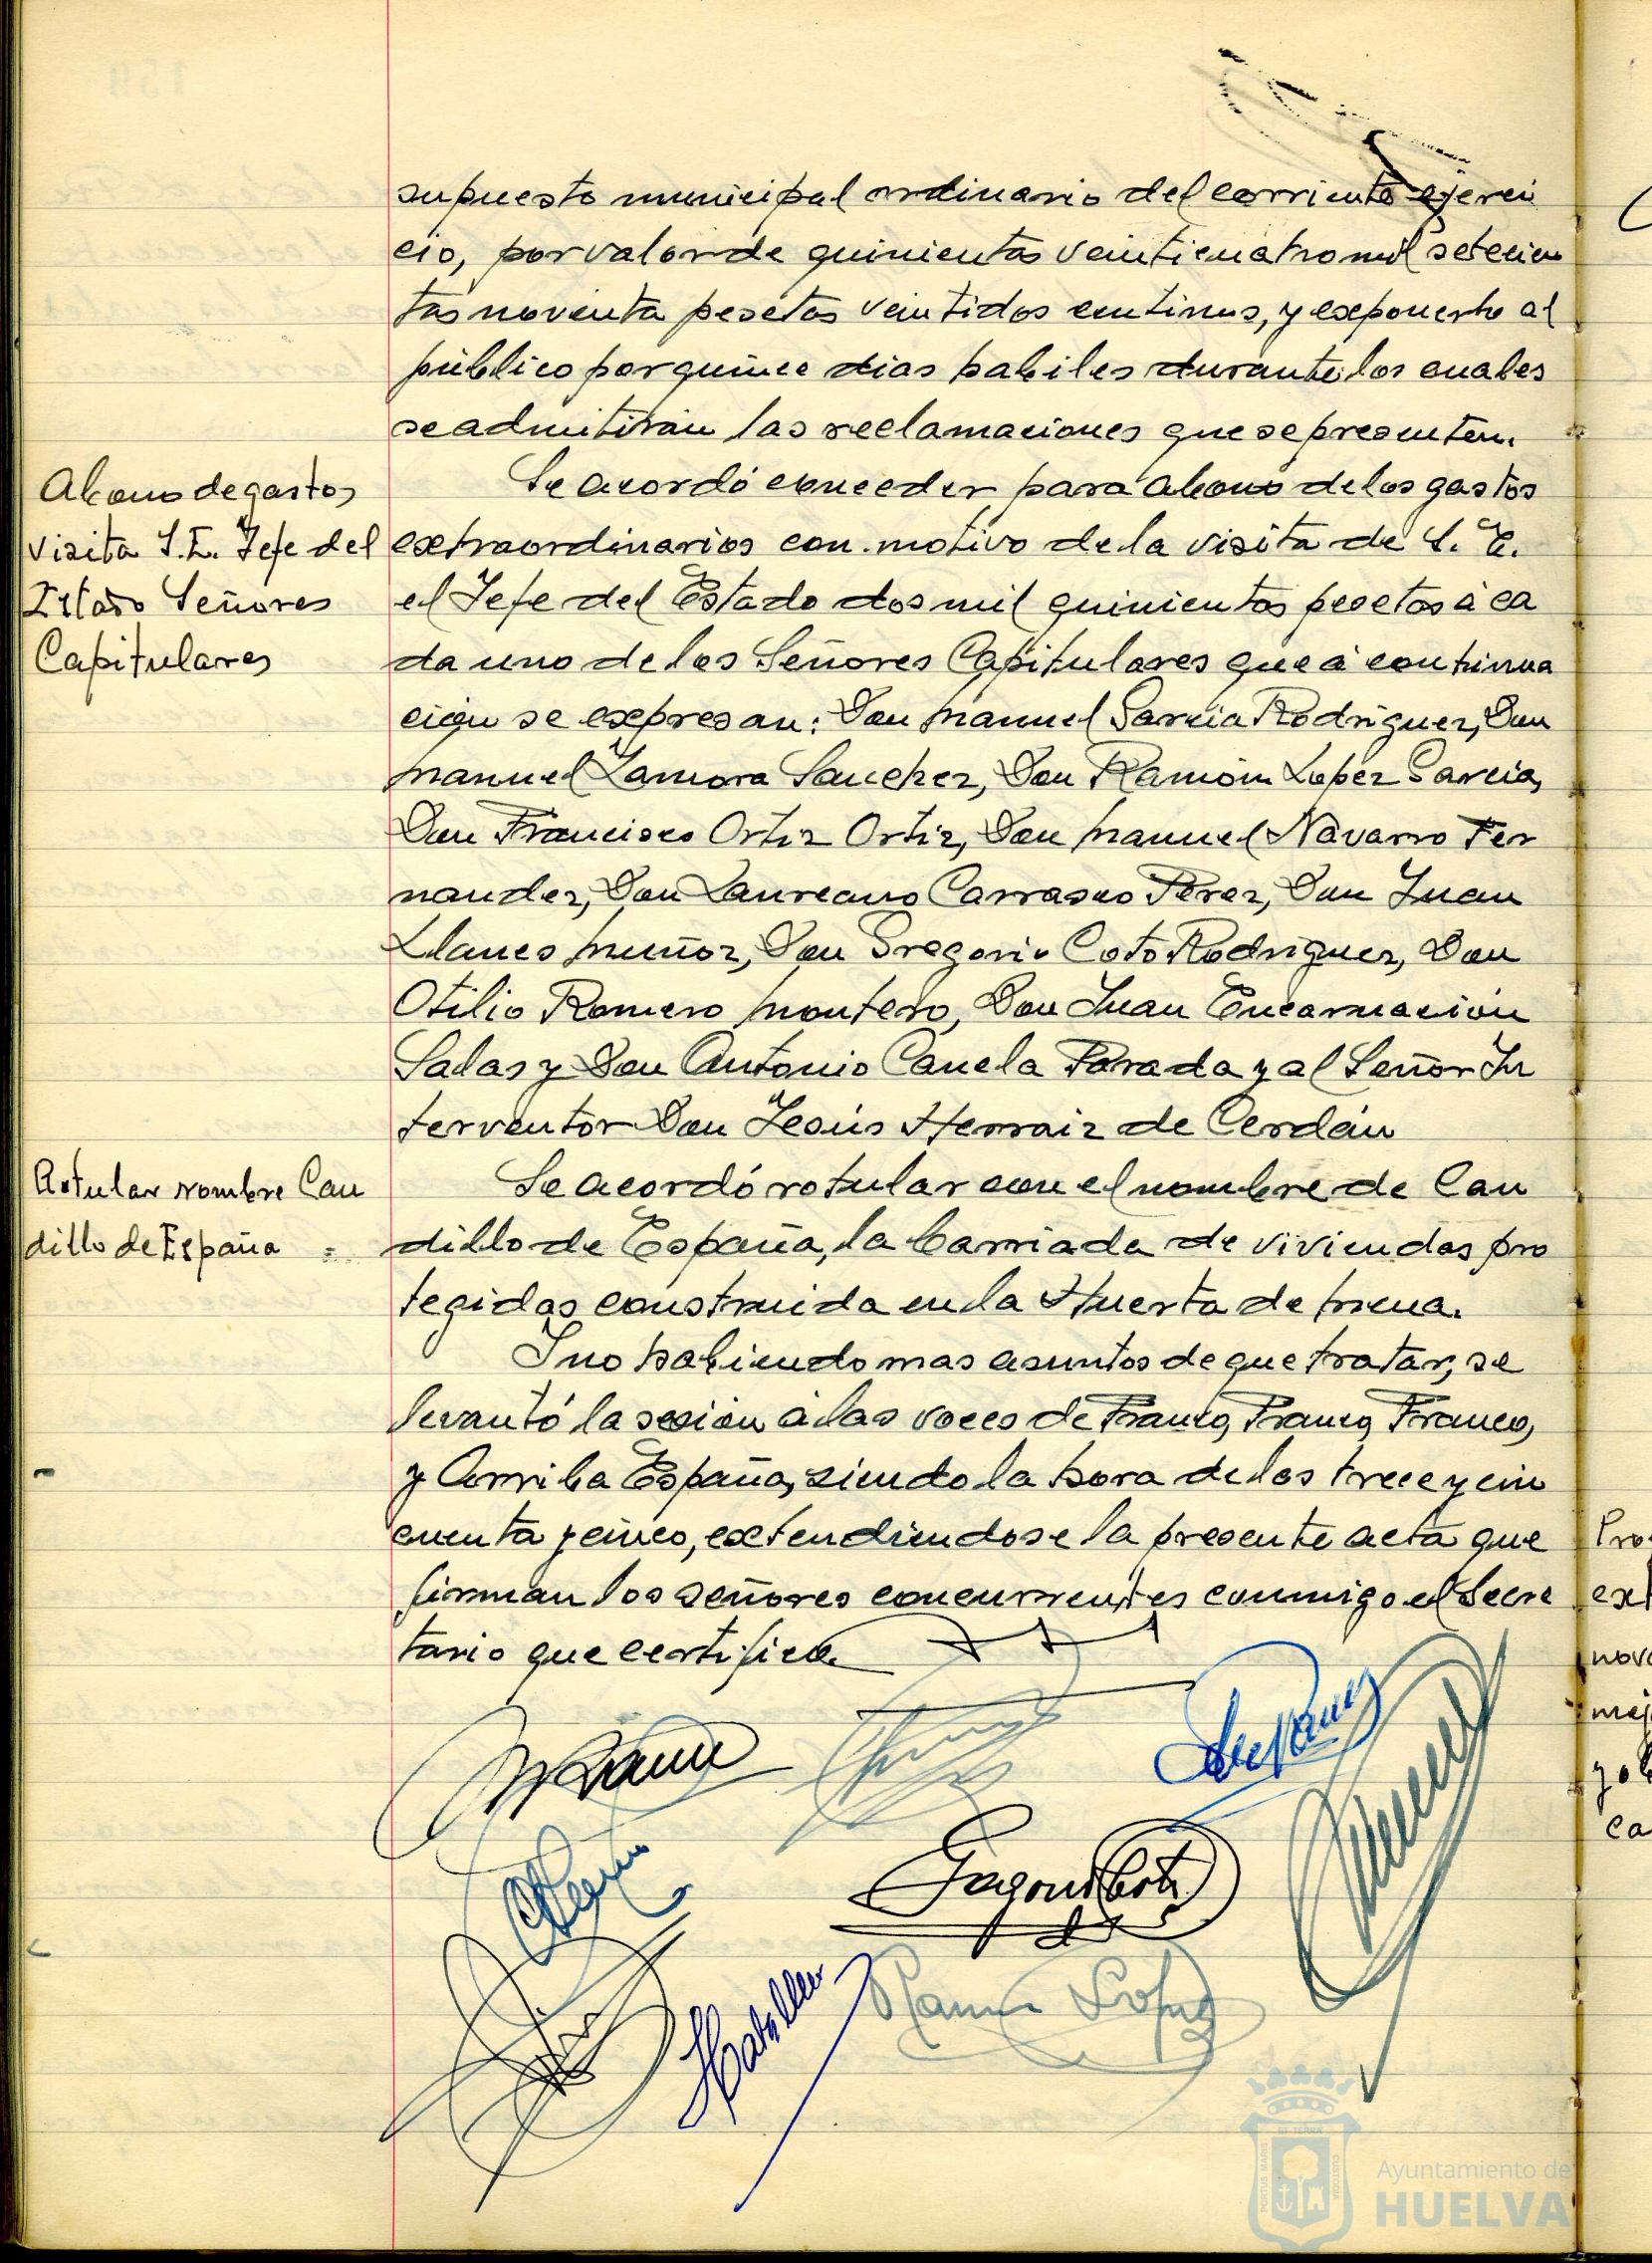 supuesto municipal ordinario del corriente ejerci
cio, por valor de quinientas veinticuatro mil setecien
tas noventa pesetas veintidos centimos, y exponerlo al
público por quince dias habiles durante los cuales
se admitirán las reclamaciones que se presenten.
Abono de gastos
visita S.E. Jefe del
Estado Señores
Capitulares
Se acordó conceder para abono de los gastos
extraordinarios con motivo de la visita de S. E.
el Jefe del Estado dos mil quinientas pesetas á ca
da uno de los Señores Capitulares que á continua
ción se expresan: Don Manuel Garcia Rodriguez, Don
Manuel Zamora Sanchez, Don Ramón Lopez Garcia,
Don Francisco Ortiz Ortiz, Don Manuel Navarro Fer
nandez, Don Laureano Carrasco Perez, Don Juan
Llanes Muñoz, Don Gregorio Coto Rodriguez, Don
Otilio Romero Montero, Don Juan Encarnación
Salas y Don Antonio Canela Parada y al Señor In
terventor Don Jesús Herraiz de Cerdán
Rotular nombre Cau
dillo de España =
Se acordó rotular con el nombre de Cau
dillo de España, la barriada de viviendas pro
tegidas construida en la Huerta de Mena.
Y no habiendo mas asuntos de que tratar, se
levantó la sesión á las voces de Franco, Franco, Franco,
y Arriba España, siendo la hora de las trece y cin
cuenta y cinco, extendiendose la presente acta que
firman los señores concurrentes conmigo el Secre
tario que certifico.
Ramon Lopez
Ayuntamiento de
HUELVA